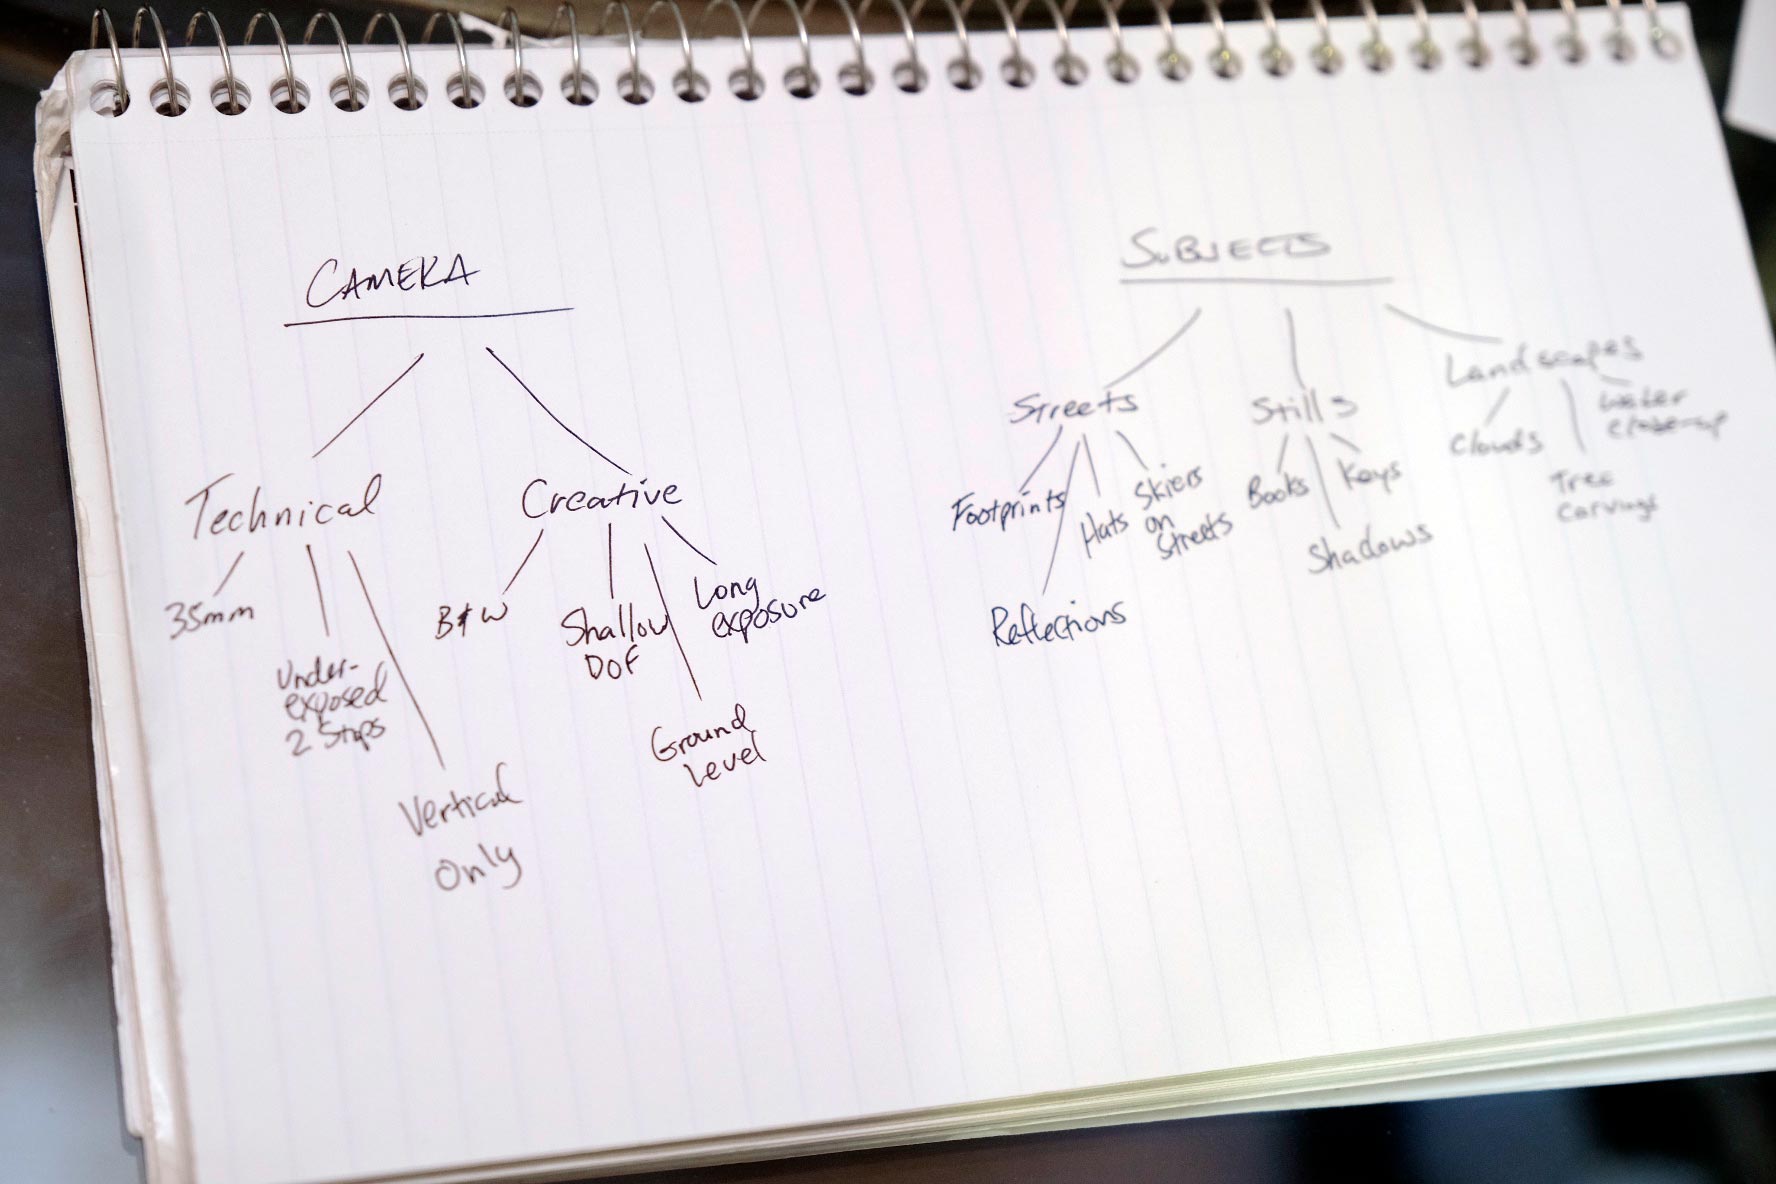 CAMERA
Technical
35mm
Under-
exposed
2 Stops
Vertical
Only
Creative
B&W
Shallow
DOF
Ground
Level
Long
exposure
SUBJECTS
Streets
Footprints
Reflections
Hats
Skiers
on
Streets
Stills
Books
Shadows
Keys
Landscapes
Clouds
Tree
Carvings
Water
close-up